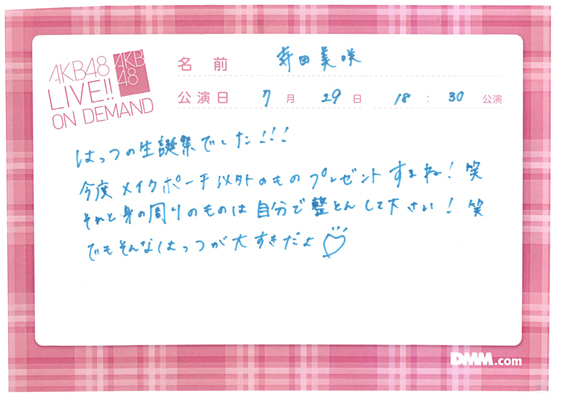 AKB48
LIVE!!
ON DEMAND
AKB
48
名前 寿田美咲
公演日 7月29日 18:30 公演
はっつの生誕祭でした!!!
今度メイクポーチ以外のものプレゼントするね!笑
それと身の周りのものは自分で整とんして下さい!笑
でもそんなはっつが大すきだよ♡
DMM.com